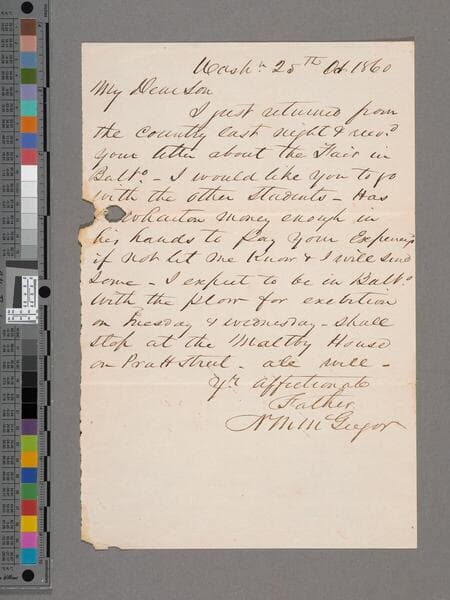 Washn. 25th Oct 1860
My Dear Son
I just returned from
the Country last night & recv.d
your letter about the Fair in
Balto. - I would like you to go
with the other Students - Has
Wharton money enough in
his hands to pay your Expences
if not let me know & I will send
some - I expect to be in Balto.
with the plow for exebition
on Tuesday & wednesday - shall
stop at the Maltby House
on Pratt Street - all well -
Yr. affectionate
Father
N M McGregor